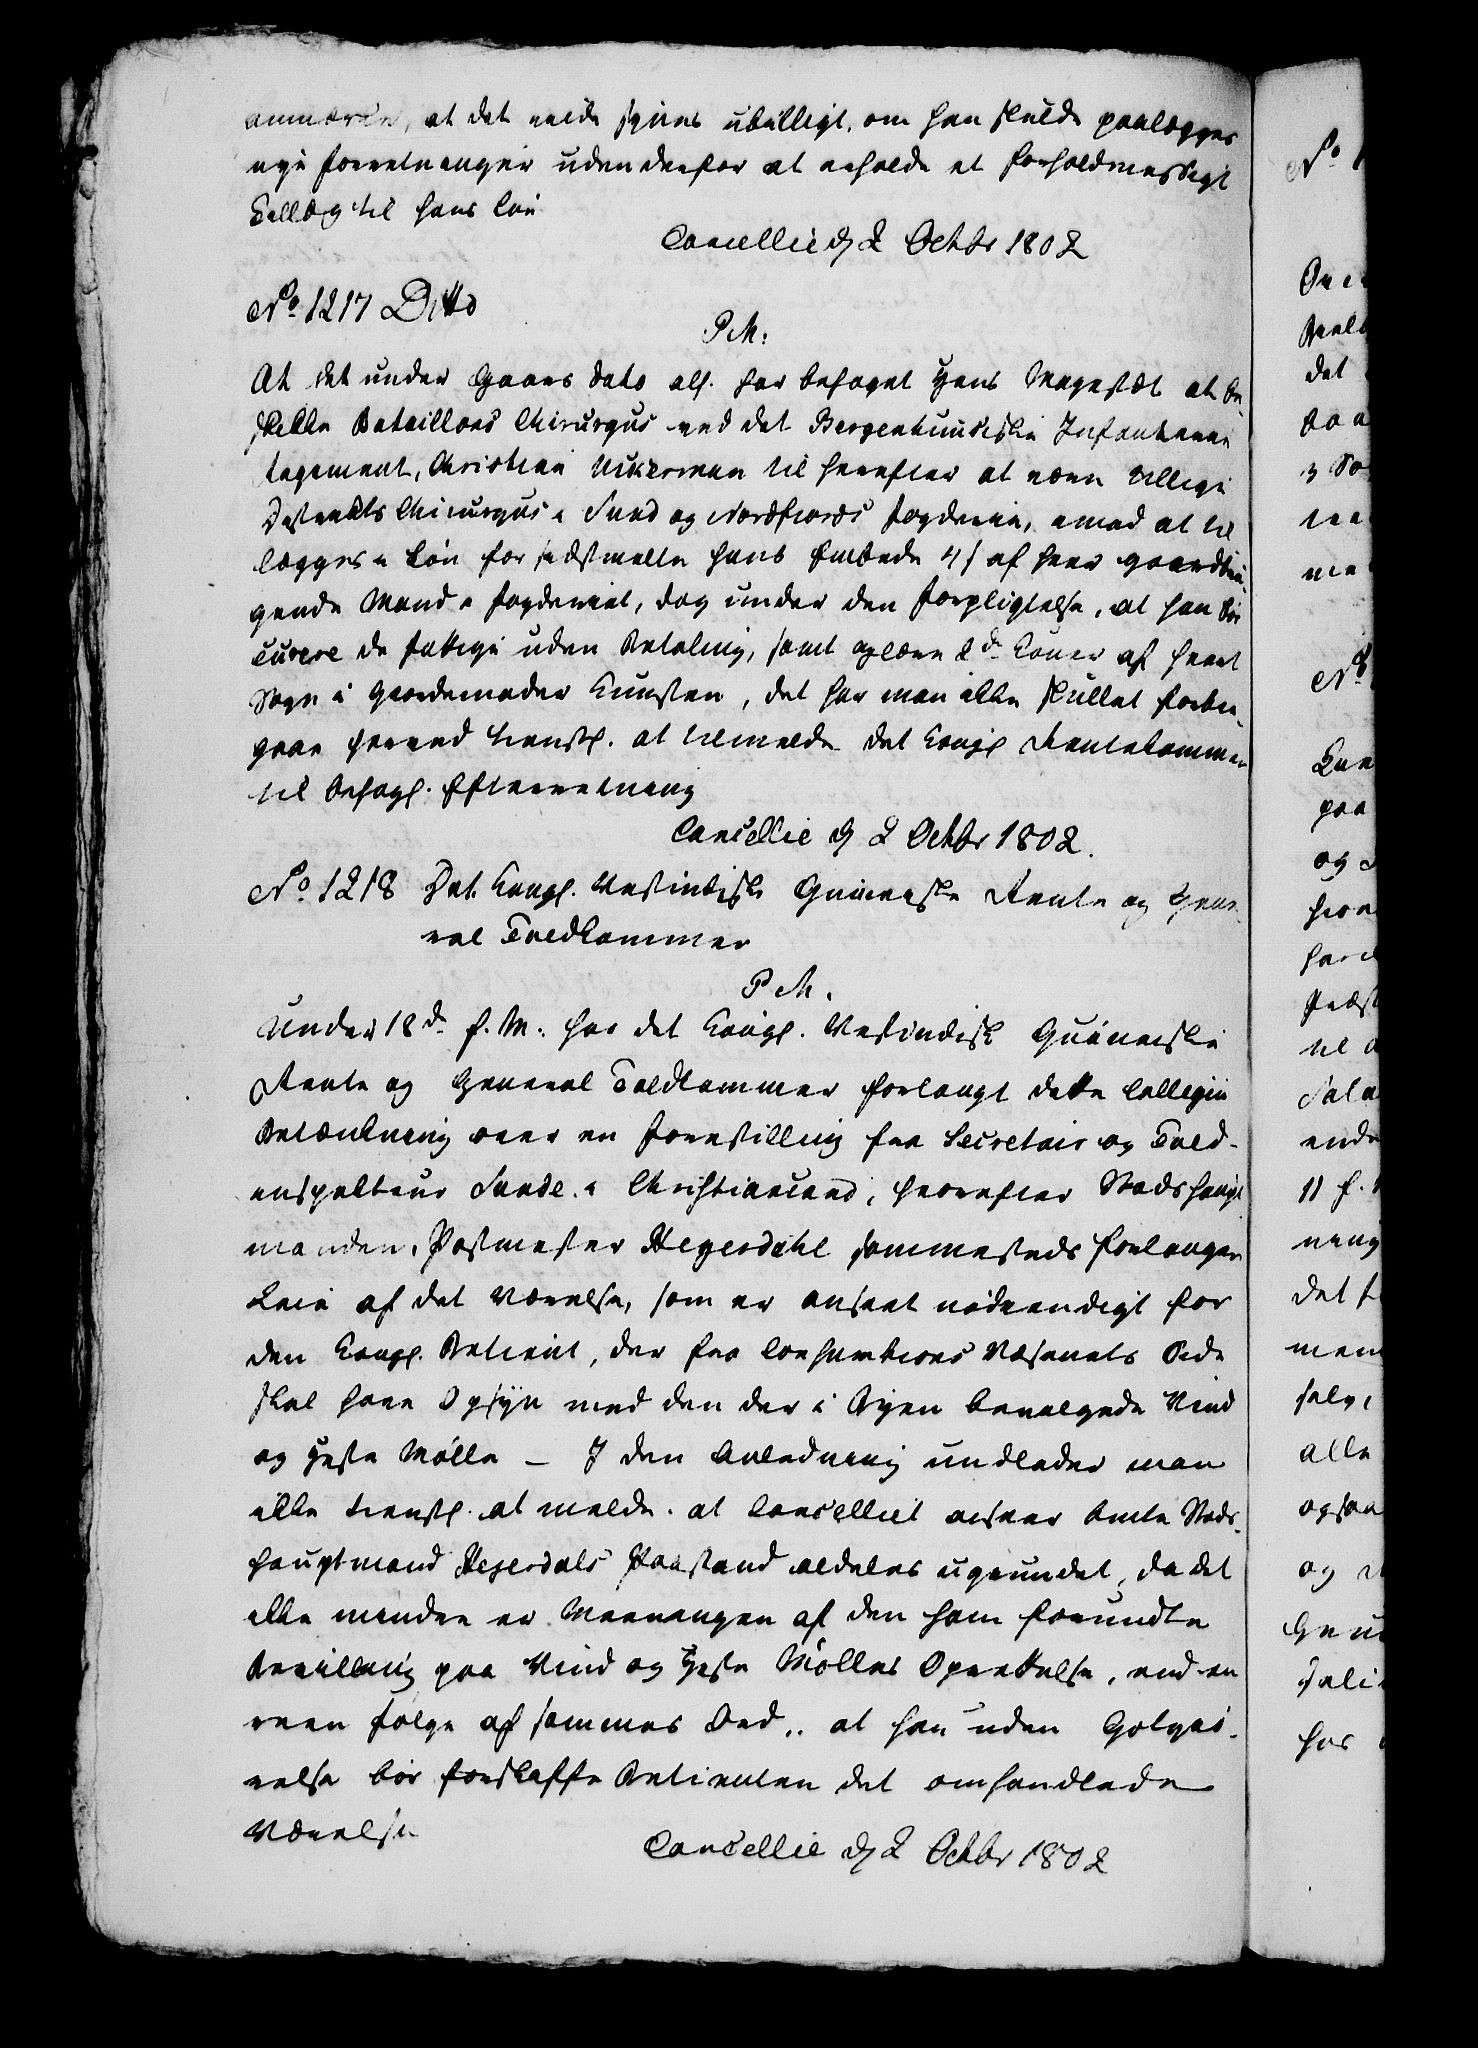 anmærke, at det vilde synes ubilligt, om han skulde paalægges
nye Forretninger uden derfor at erholde et forholdmæssigt
Tillæg til hans Løn
Cancellie d 2 Octbr 1802
No 1217 Ditto
P M:
At det under Gaars dato all. har behaget Hans Majestæt at be-
skikke Bataillons Chirurgus ved det Bergenhuusiske Infanterie
Regement, Christian Ukerman til herefter at være tillige
Distrikts Chirurgus i Sund og Nordfiords Fogderie, imod at til
lægges i Løn for sidstmelte hans Embede 4 s af hver gaardbru-
gende Mand i Fogderiet, dog under den Forpligtelse, at han bør
curere de fattige uden Betaling, samt oplære 2de Koner af hvert
Sogn i Giordemoder Kunsten, det har man ikke skullet forbie-
gaae herved tienstl. at tilmelde det Kongl Rentekammer
til behagl. Efterretning
Cancellie d 2 Octbr 1802.
No 1218 Det Kongl. Vestindiske Guineiske Rente og Gene-
ral Toldkammer
P M.
Under 18de f. M. har det Kongl. Vestindisk Guineiske
Rente og General Toldkammer forlangt dette Collegii
Betænkning over en Forestilling fra Secretair og Told-
inspekteur Sunde i Christiansand, hvorefter Stadshaupt
manden, Postmester Hegerdahl sammesteds forlanger
Leie af det Værelse, som er anseet nødvendigt for
den Kongl. Betient, der fra Consumtions Væsenets Side
skal have Opsyn med den der i Byen bevilgede Vind
og Heste Mølle – I den Anledning undlader man
ikke tienstl. at melde, at Cancelliet anseer bemte Stads-
hauptmand Hegerdals Paastand aldeles ugrundet, da det
ikke mindre er Meeningen af den ham forundte
Bevilling paa Vind og Heste Mølles Oprettelse, end en
reen Følge af sammes Ord, at han uden Godtgiø-
relse bør forskaffe Betienten det omhandlede
Værelse
Cancellie d 2 Octbr 1802